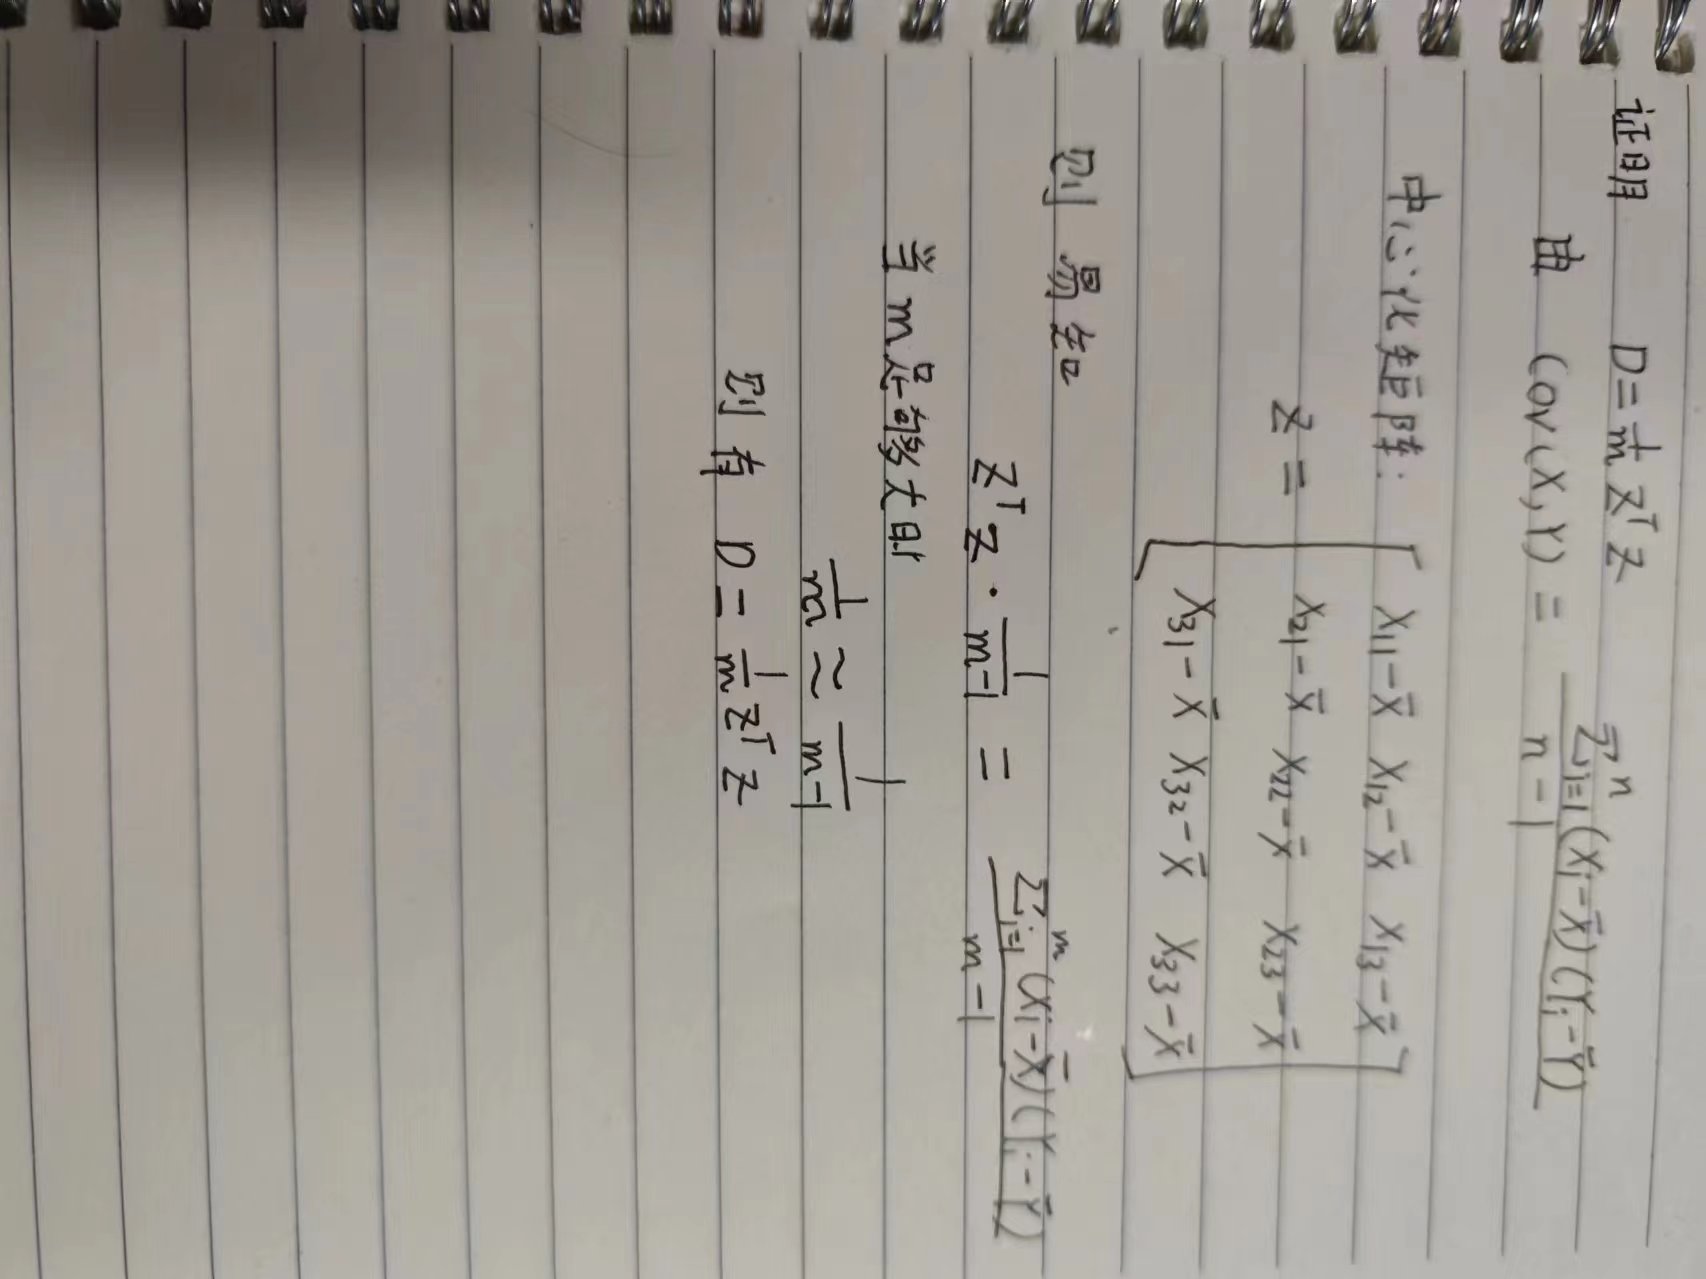 证明 D = 1/m Zᵀ Z
由 Cov(X,Y) = Σᵢ₌₁ⁿ(Xᵢ-X̄)(Yᵢ-Ȳ) / n-1
中心化矩阵:
X₁₁-X̄ X₁₂-X̄ X₁₃-X̄
Z = X₂₁-X̄ X₂₂-X̄ X₂₃-X̄
X₃₁-X̄ X₃₂-X̄ X₃₃-X̄
则 易知
Zᵀ Z · 1/m-1 = Σᵢ₌₁ᵐ(Xᵢ-X̄)(Yᵢ-Ȳ) / m-1
当m足够大时
1/m ≈ 1/m-1
则有 D = 1/m Zᵀ Z